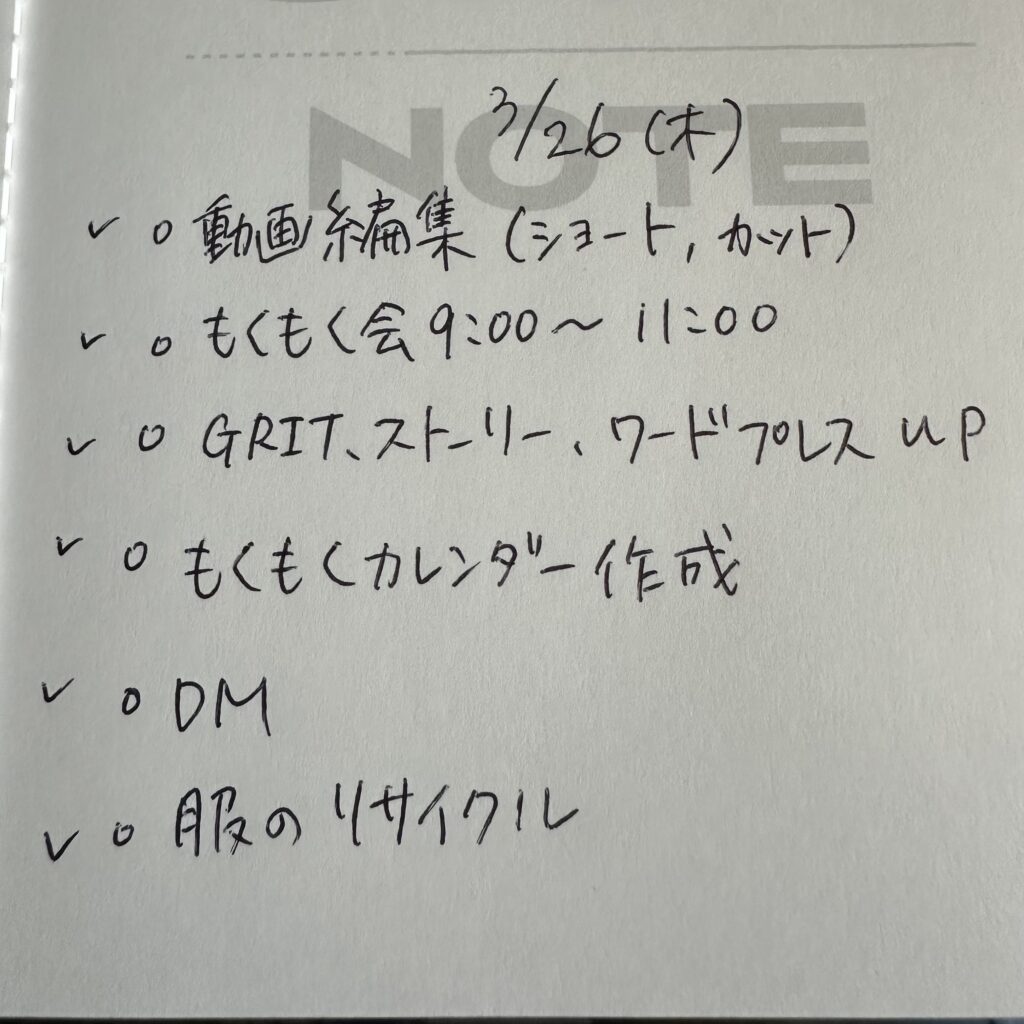 NOTE
3/26(木)
✓ o 動画編集(ショート, カット)
✓ o もくもく会 9:00〜11:00
✓ o GRIT、ストーリー、ワードプレスUP
✓ o もくもくカレンダー作成
✓ o DM
✓ o 服のリサイクル